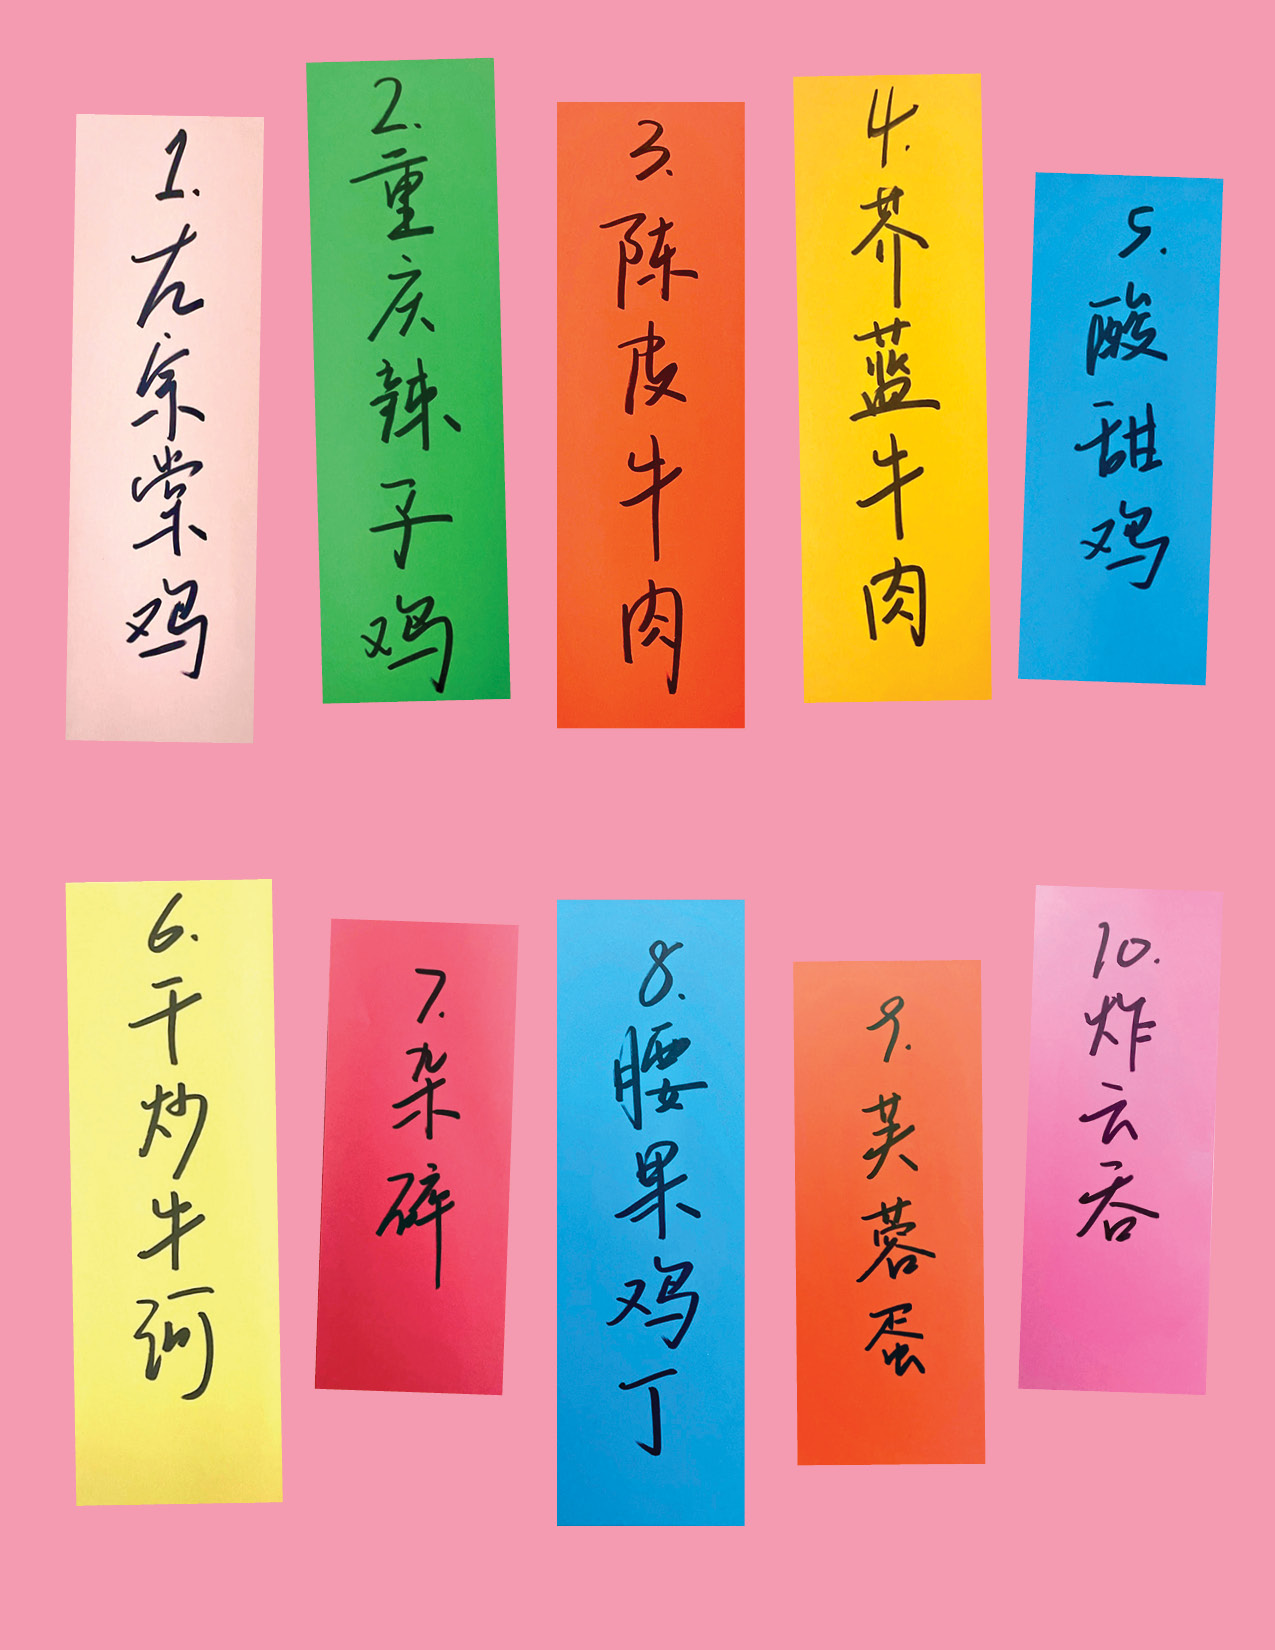 1.左宗棠鸡
2.重庆辣子鸡
3.陈皮牛肉
4.芥蓝牛肉
5.酸甜鸡
6.干炒牛河
7.杂碎
8.腰果鸡丁
9.芙蓉蛋
10.炸云吞